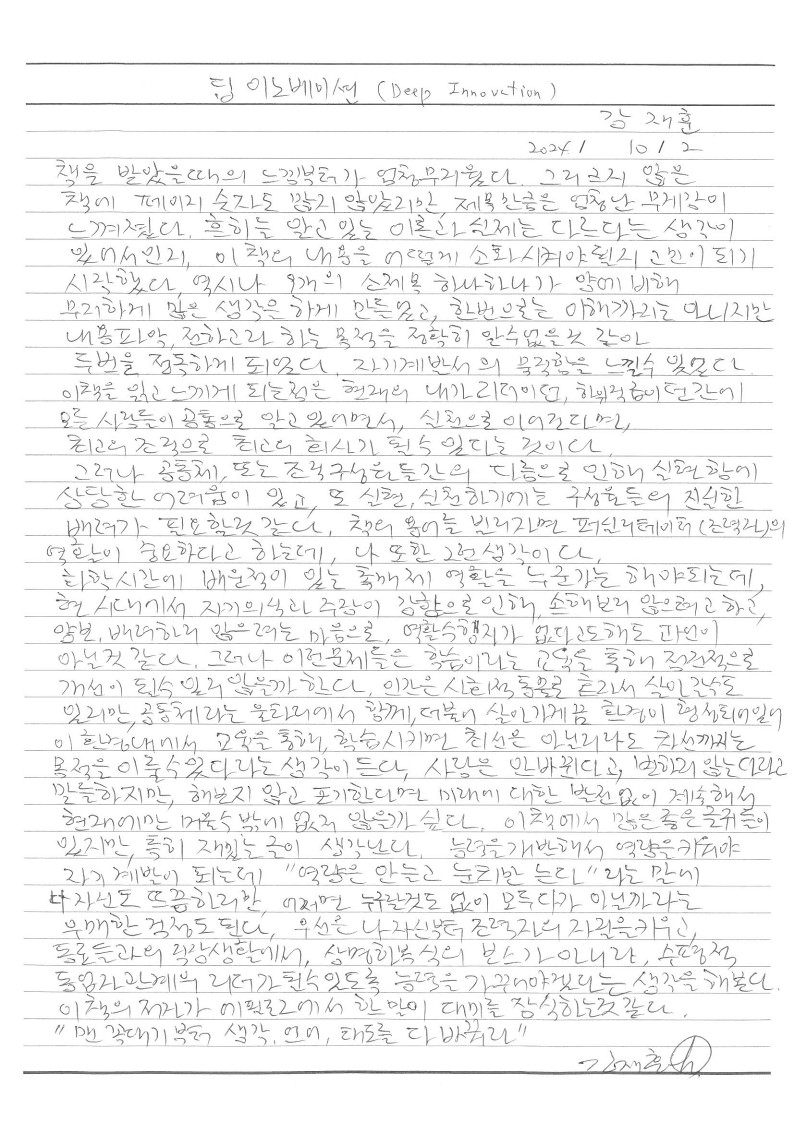 딥 이노베이션 (Deep Innovation)
강 재훈
2024 / 10 / 2
책을 받았을때의 느낌부터가 엄청무거웠다. 그리크지 않은
책에 페이지 숫자도 많지 않았지만, 제목만큼은 엄청난 무게감이
느껴졌다. 흔히들 알고있는 이론과 실제는 다르다는 생각이
있어서인지, 이 책의 내용을 어떻게 소화시켜야될지 고민이 되기
시작했다, 역시나 9개의 소제목 하나하나가 양에 비해
무리하게 많은 생각은 하게 만들었고, 한번으로는 이해까지는 아니지만
내용파악, 전하고자 하는 목적을 정확히 알수없을것 같아
두번을 정독하게 되었다. 자기계발서의 묵직함을 느낄수 있었다.
이책을 읽고 느끼게 되는점은 현재의 내가 리더이던, 하위직급이던간에
모든 사람들이 공통으로 알고있으면서, 실천으로 이어진다면,
최고의 조직으로 최고의 회사가 될수 있다는 것이다.
그러나 공동체, 또는 조직구성원들간의 다름으로 인해 실현함에
상당한 어려움이 있고, 또 실현, 실천하기에는 구성원들의 진실한
배려가 필요할것 같다. 책의 용어를 빌리자면 퍼실리테이터(조력자)의
역활이 중요하다고 하는데, 나 또한 그런 생각이다.
화학시간에 배운적이 있는 촉매제 역활을 누군가는 해야되는데,
현 시대에서 자기의식과 주장이 강함으로 인해, 손해보지 않으려고 하고,
양보, 배려하지 않으려는 마음으로, 역활수행자가 없다고도해도 과언이
아닐것 같다. 그러나 이런문제들은 학습이라는 교육을 통해 점진적으로
개선이 될수 있지 않을까 한다. 인간은 사회적 동물로 혼자서 살아갈수도
있지만, 공동체라는 울타리에서 함께, 더불어 살아가게끔 환경이 형성되어있어
이 환경내에서 교육을 통해, 학습시키면 최선은 아닐지라도 차선까지는
목적을 이룰수있다라는 생각이 든다, 사람은 안바뀐다고, 변하지 않는다라고
말들하지만, 해보지 않고 포기한다면 미래에 대한 발전없이 계속해서
현재에만 머물수 밖에 없지 않을까 싶다. 이책에서 많은 좋은 글귀들이
있지만, 특히 재밌는 글이 생각난다. 능력을개발해서 역량을키워야
자기계발이 되는데 "역량은 안늘고 눈치만 는다"라는 말에
나자신도 뜨끔하지만, 어쩌면 누구랄것도 없이 모두다가 아닐까라는
우매한 걱정도 된다, 우선은 나자신부터 조력자의 자질을키우고,
동료들과의 직장생활에서, 상명하복식의 보스가 아니라, 수평적
동업자관계의 리더가 될수있도록 능력을 가꾸어야겠다는 생각을 해본다.
이책의 저자가 에필로그에서 한말이 대미를 장식하는것 같다.
"맨 꼭대기부터 생각, 언어, 태도를 다 바꿔라"
강재훈